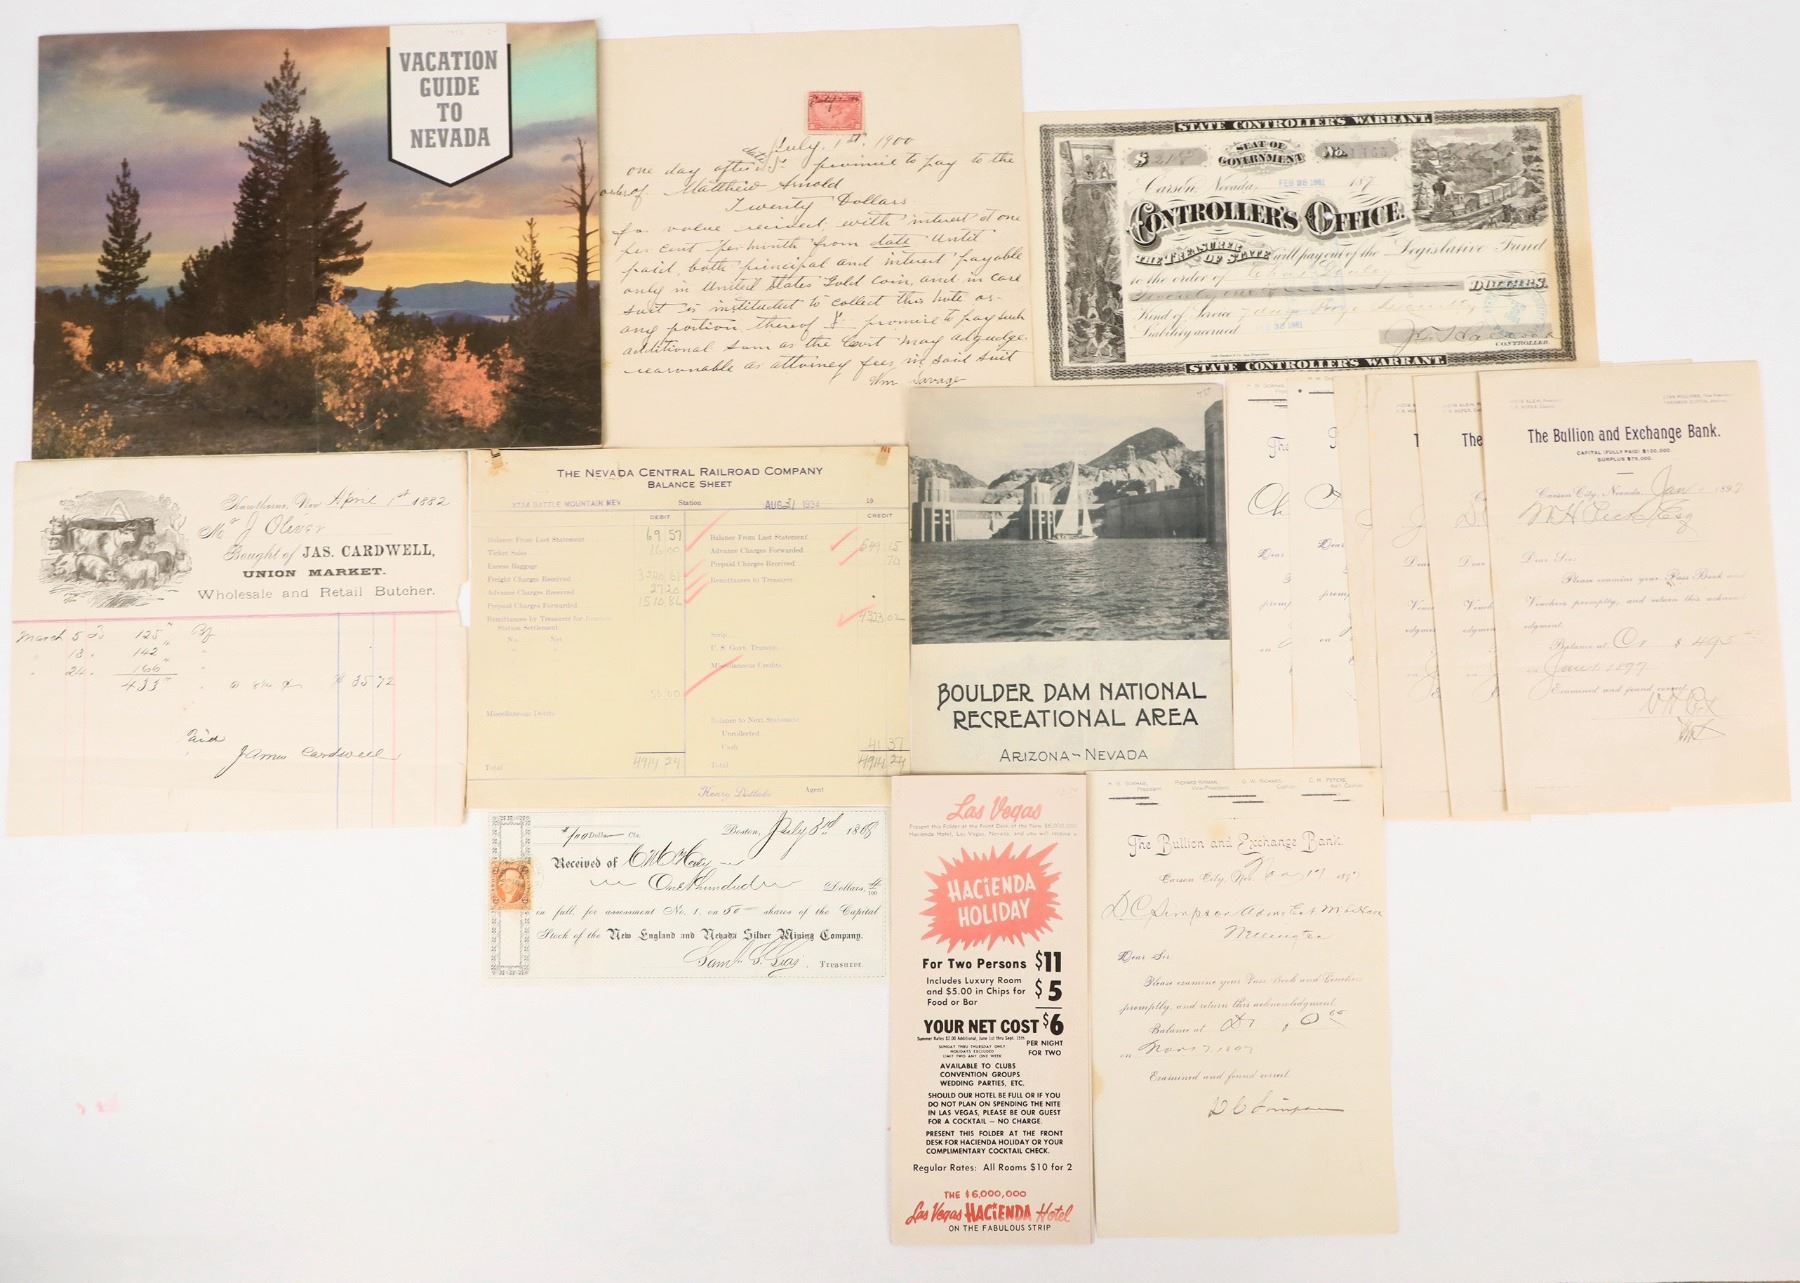 VACATION
GUIDE
TO
NEVADA
July, 1st, 1900
one day after date I promise to pay to the
order of Matthew Arnold
Twenty Dollars
for value received, with interest at one
per cent per month from date until
paid, both principal and interest payable
only in United States Gold Coin, and in case
suit is instituted to collect this note or
any portion thereof I promise to pay such
additional sum as the Court may adjudge
reasonable as attorney fees in said suit
Wm Savage
STATE CONTROLLER'S WARRANT.
SEAT OF
GOVERNMENT
No.
Carson, Nevada, FEB 28 1881 187
CONTROLLER'S OFFICE.
THE TREASURER OF STATE will pay out of the Legislative Fund
to the order of
DOLLARS.
Kind of Service
Liability accrued
CONTROLLER.
STATE CONTROLLER'S WARRANT.
Hawthorne, Nev April 1st 1882
Mr J Oliver
Bought of JAS. CARDWELL,
UNION MARKET.
Wholesale and Retail Butcher.
March 5 To 125 " Bf
" 13 " 142 " "
" 24 " 166 "
433 " @ 8¼ $ 35 72
Paid
James Cardwell
THE NEVADA CENTRAL RAILROAD COMPANY
BALANCE SHEET
BATTLE MOUNTAIN NEV Station AUG 31 1934 19
DEBIT CREDIT
Balance From Last Statement 69 57
Ticket Sales 16 00
Excess Baggage
Freight Charges Received
Advance Charges Received 27 20
Prepaid Charges Forwarded 1510 86
Remittances by Treasurer for
Station Settlement
No. Net
50 00
Miscellaneous Debits
Total 4914 24
Balance From Last Statement
Advance Charges Forwarded 549 15
Prepaid Charges Received 70
Remittances to Treasurer
4323 02
Scrip
U. S. Govt. Transpn.
Miscellaneous Credits
Balance to Next Statement
Uncollected
Cash 41 37
Total 4914 24
Henry Dutlelo Agent
BOULDER DAM NATIONAL
RECREATIONAL AREA
ARIZONA~NEVADA
The Bullion and Exchange Bank.
CAPITAL (FULLY PAID) $100,000.
SURPLUS $75,000.
Carson City, Nevada, Jan 1897
W H Peck Esq
Dear Sir:
Please examine your Pass Book and
Vouchers promptly, and return this acknowl-
edgment.
Balance at Cr $ 495
on Jan 1 1897
Examined and found correct
$100 Dolls Cts. Boston, July 3rd 1868
Received of
One Hundred Dollars, 100
in full, for assessment No. 1, on 50 shares of the Capital
Stock of the New England and Nevada Silver Mining Company.
Treasurer.
Las Vegas
Present this Folder at the Front Desk of the New $6,000,000
Hacienda Hotel, Las Vegas, Nevada, and you will receive a
HACIENDA
HOLIDAY
For Two Persons $11
Includes Luxury Room
and $5.00 in Chips for
Food or Bar $5
YOUR NET COST $6
Summer Rates $2.00 Additional, June 1st thru Sept. 15th
PER NIGHT
FOR TWO
SUNDAY THRU THURSDAY ONLY
HOLIDAYS EXCLUDED
LIMIT TWO ANY ONE WEEK
AVAILABLE TO CLUBS
CONVENTION GROUPS
WEDDING PARTIES, ETC.
SHOULD OUR HOTEL BE FULL OR IF YOU
DO NOT PLAN ON SPENDING THE NITE
IN LAS VEGAS, PLEASE BE OUR GUEST
FOR A COCKTAIL — NO CHARGE.
PRESENT THIS FOLDER AT THE FRONT
DESK FOR HACIENDA HOLIDAY OR YOUR
COMPLIMENTARY COCKTAIL CHECK.
Regular Rates: All Rooms $10 for 2
THE $6,000,000
Las Vegas HACIENDA Hotel
ON THE FABULOUS STRIP
The Bullion and Exchange Bank.
Carson City, Nev.
D C Simpson
Dear Sir:
Please examine your Pass Book and Vouchers
promptly, and return this acknowledgment.
Balance at
on
Examined and found correct
D C Simpson